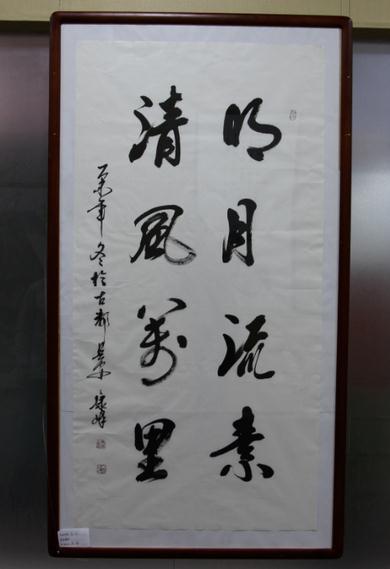 明月流素
清風萬里
年冬於古都